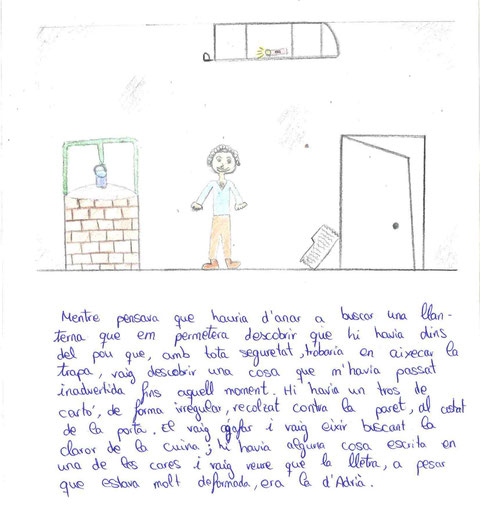 Mentre pensava que hauria d'anar a buscar una llan-
terna que em permetera descobrir que hi havia dins
del pou que, amb tota seguretat, trobaria en aixecar la
trapa, vaig descobrir una cosa que m'havia passat
inadvertida fins aquell moment. Hi havia un tros de
cartó, de forma irregular, recolzat contra la paret, al costat
de la porta. El vaig agafar i vaig eixir buscant la
claror de la cuina; hi havia alguna cosa escrita en
una de les cares i vaig veure que la lletra, a pesar
que estava molt deformada, era la d'Adrià.